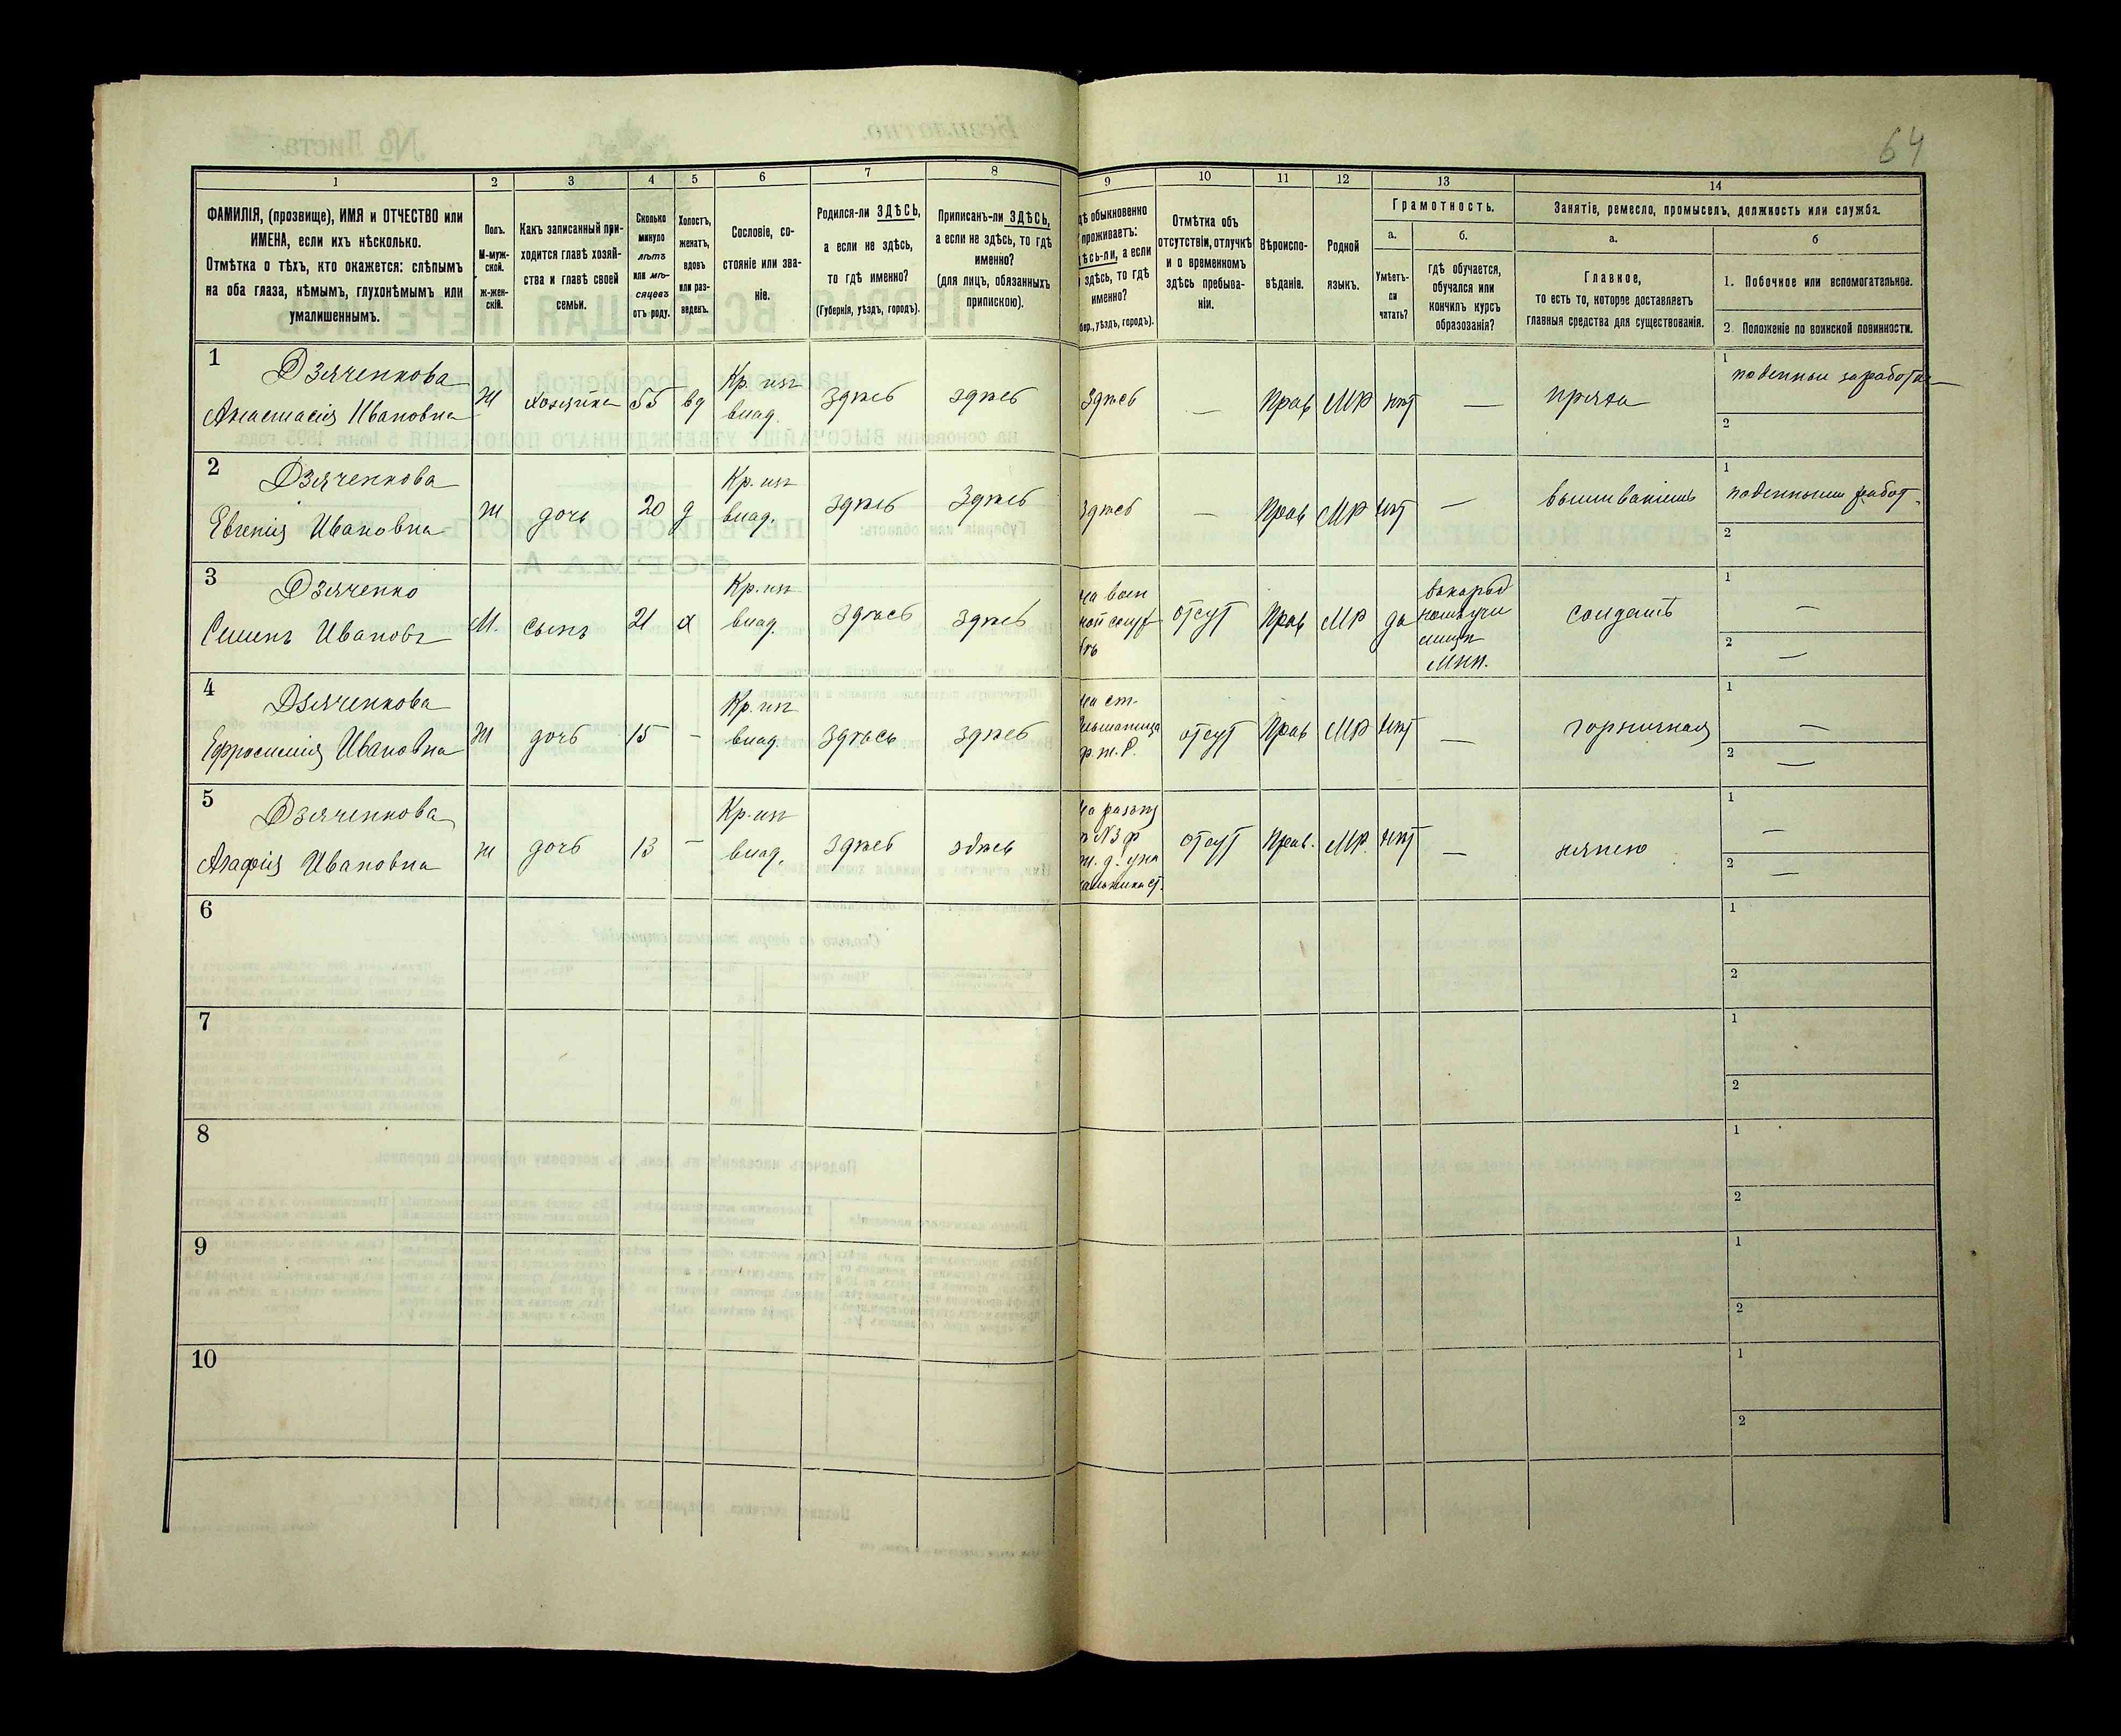 64
1 2 3 4 5 6 7 8 9 10 11 12 13 14
ФАМИЛІЯ, (прозвище), ИМЯ и ОТЧЕСТВО или
ИМЕНА, если ихъ нѣсколько.
Отмѣтка о тѣхъ, кто окажется: слѣпымъ
на оба глаза, нѣмымъ, глухонѣмымъ или
умалишеннымъ.
Полъ.
М-муж-
ской.
ж-жен-
скій.
Какъ записанный при-
ходится главѣ хозяй-
ства и главѣ своей
семьи.
Сколько
минуло
лѣтъ
или мѣ-
сяцевъ
отъ роду.
Холостъ,
женатъ,
вдовъ
или раз-
веденъ.
Сословіе, со-
стояніе или зва-
ніе.
Родился-ли ЗДѢСЬ,
а если не здѣсь,
то гдѣ именно?
(Губернія, уѣздъ, городъ).
Приписанъ-ли ЗДѢСЬ,
а если не здѣсь, то гдѣ
именно?
(для лицъ, обязанныхъ
припискою).
дѣ обыкновенно
проживаетъ:
ѣсь-ли, а если
здѣсь, то гдѣ
именно?
бер., уѣздъ, городъ).
Отмѣтка объ
отсутствіи, отлучкѣ
и о временномъ
здѣсь пребыва-
ніи.
Вѣроиспо-
вѣданіе.
Родной
языкъ.
Грамотность.
а.
Умѣетъ-
ли
читать?
б.
гдѣ обучается,
обучался или
кончилъ курсъ
образованія?
Занятіе, ремесло, промыселъ, должность или служба.
а.
Главное,
то есть то, которое доставляетъ
главныя средства для существованія.
б
1. Побочное или вспомогательное.
2. Положеніе по воинской повинности.
1
Дзяченкова
Анастасія Ивановна
ж
хозяйка
55
вд
Кр. изъ
влад.
здѣсь
здѣсь
здѣсь
—
Прав
МР
нѣт
—
пряха
1
2
2
Дзяченкова
Евгенія Ивановна
ж
дочь
20
д
Кр. изъ
влад.
здѣсь
здѣсь
здѣсь
—
Прав
МР
нѣт
—
вышиваніемъ
1
2
3
Дзяченко
Семенъ Ивановъ
М.
сынъ
21
х
Кр. изъ
влад.
здѣсь
здѣсь
на воен
отсут
Прав
МР
да
солдатъ
1 —
2 —
4
Дзяченкова
Ефросинія Ивановна
ж
дочь
15
—
Кр. изъ
влад.
здѣсь
здѣсь
на ст.
отсут
Прав
МР
нѣт
—
горничная
1 —
2 —
5
Дзяченкова
Агафія Ивановна
ж
дочь
13
—
Кр. изъ
влад.
здѣсь
здѣсь
на разъѣз
отсут
Прав.
МР.
нѣт
—
нянею
1 —
2 —
6
1
2
7
1
2
8
1
2
9
1
2
10
1
2